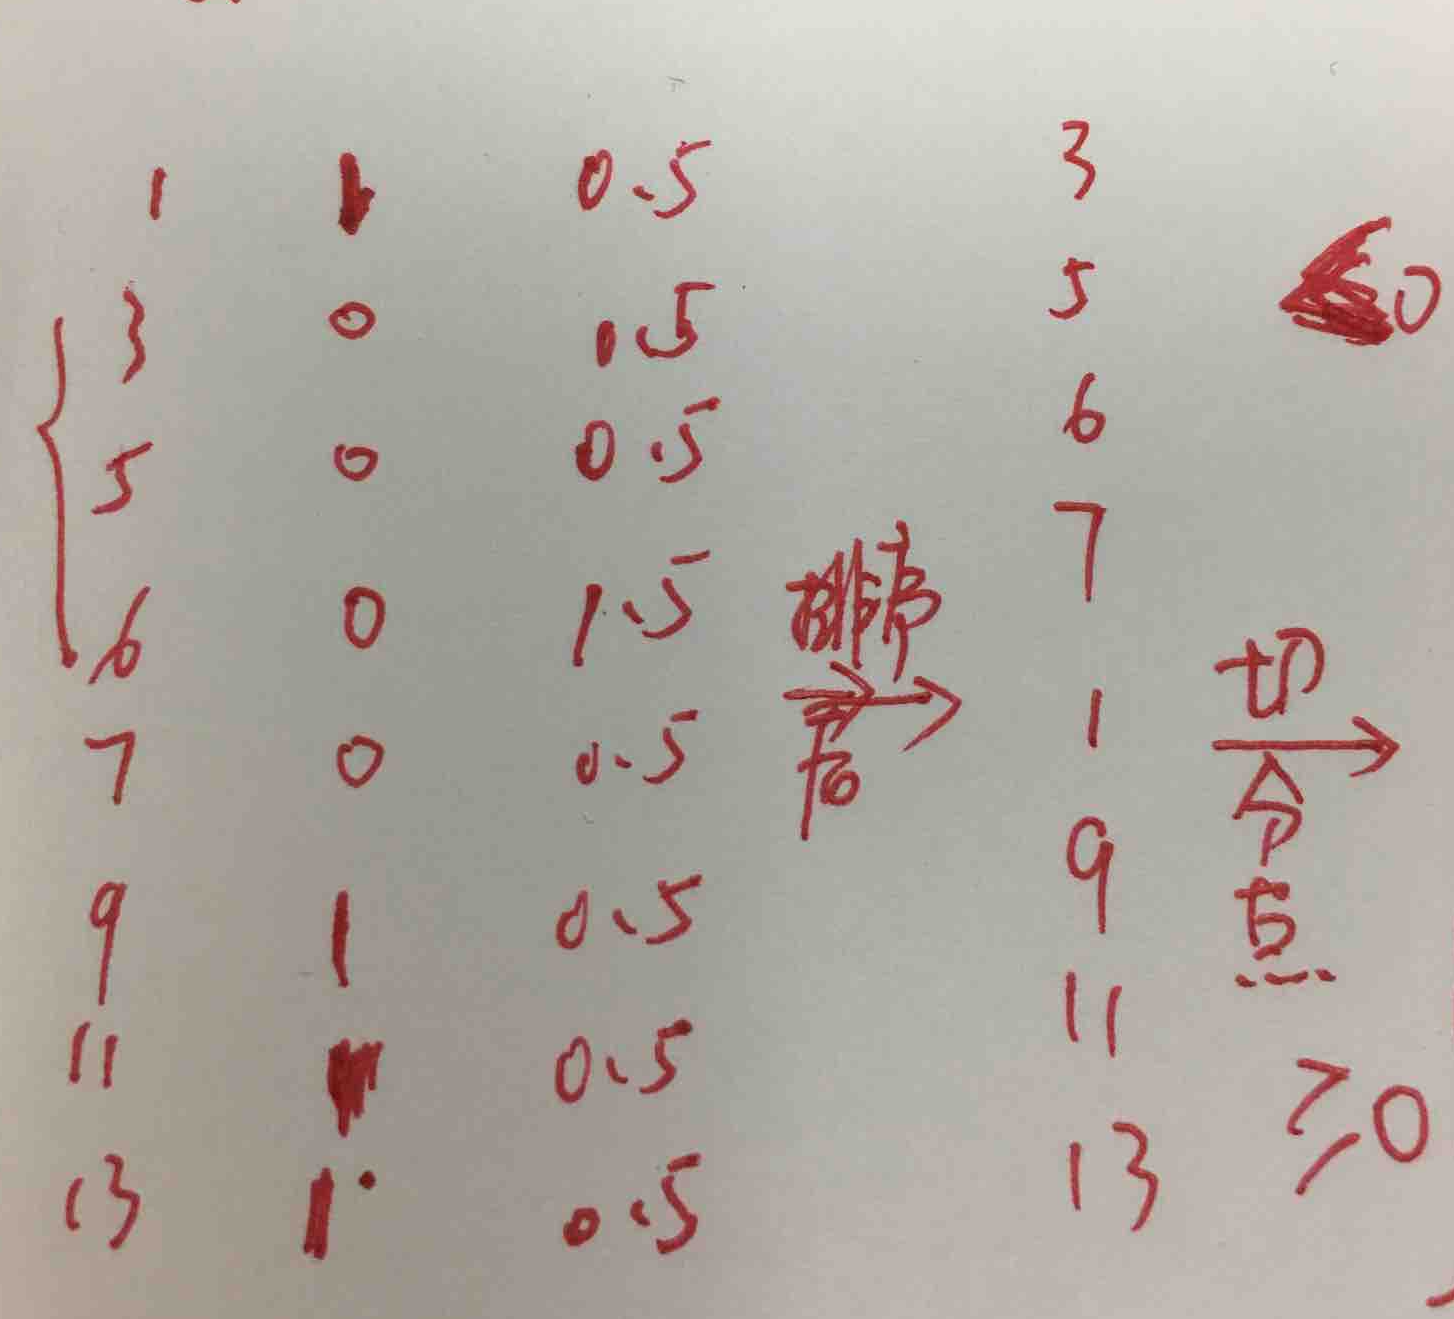 1 1 0.5
3 0 0.5
5 0 0.5
6 0 1.5
7 0 0.5
9 1 0.5
11 1 0.5
13 1 0.5
排序
后
3
5
6
7
1
9
11
13
<0
切
分
点
≥0